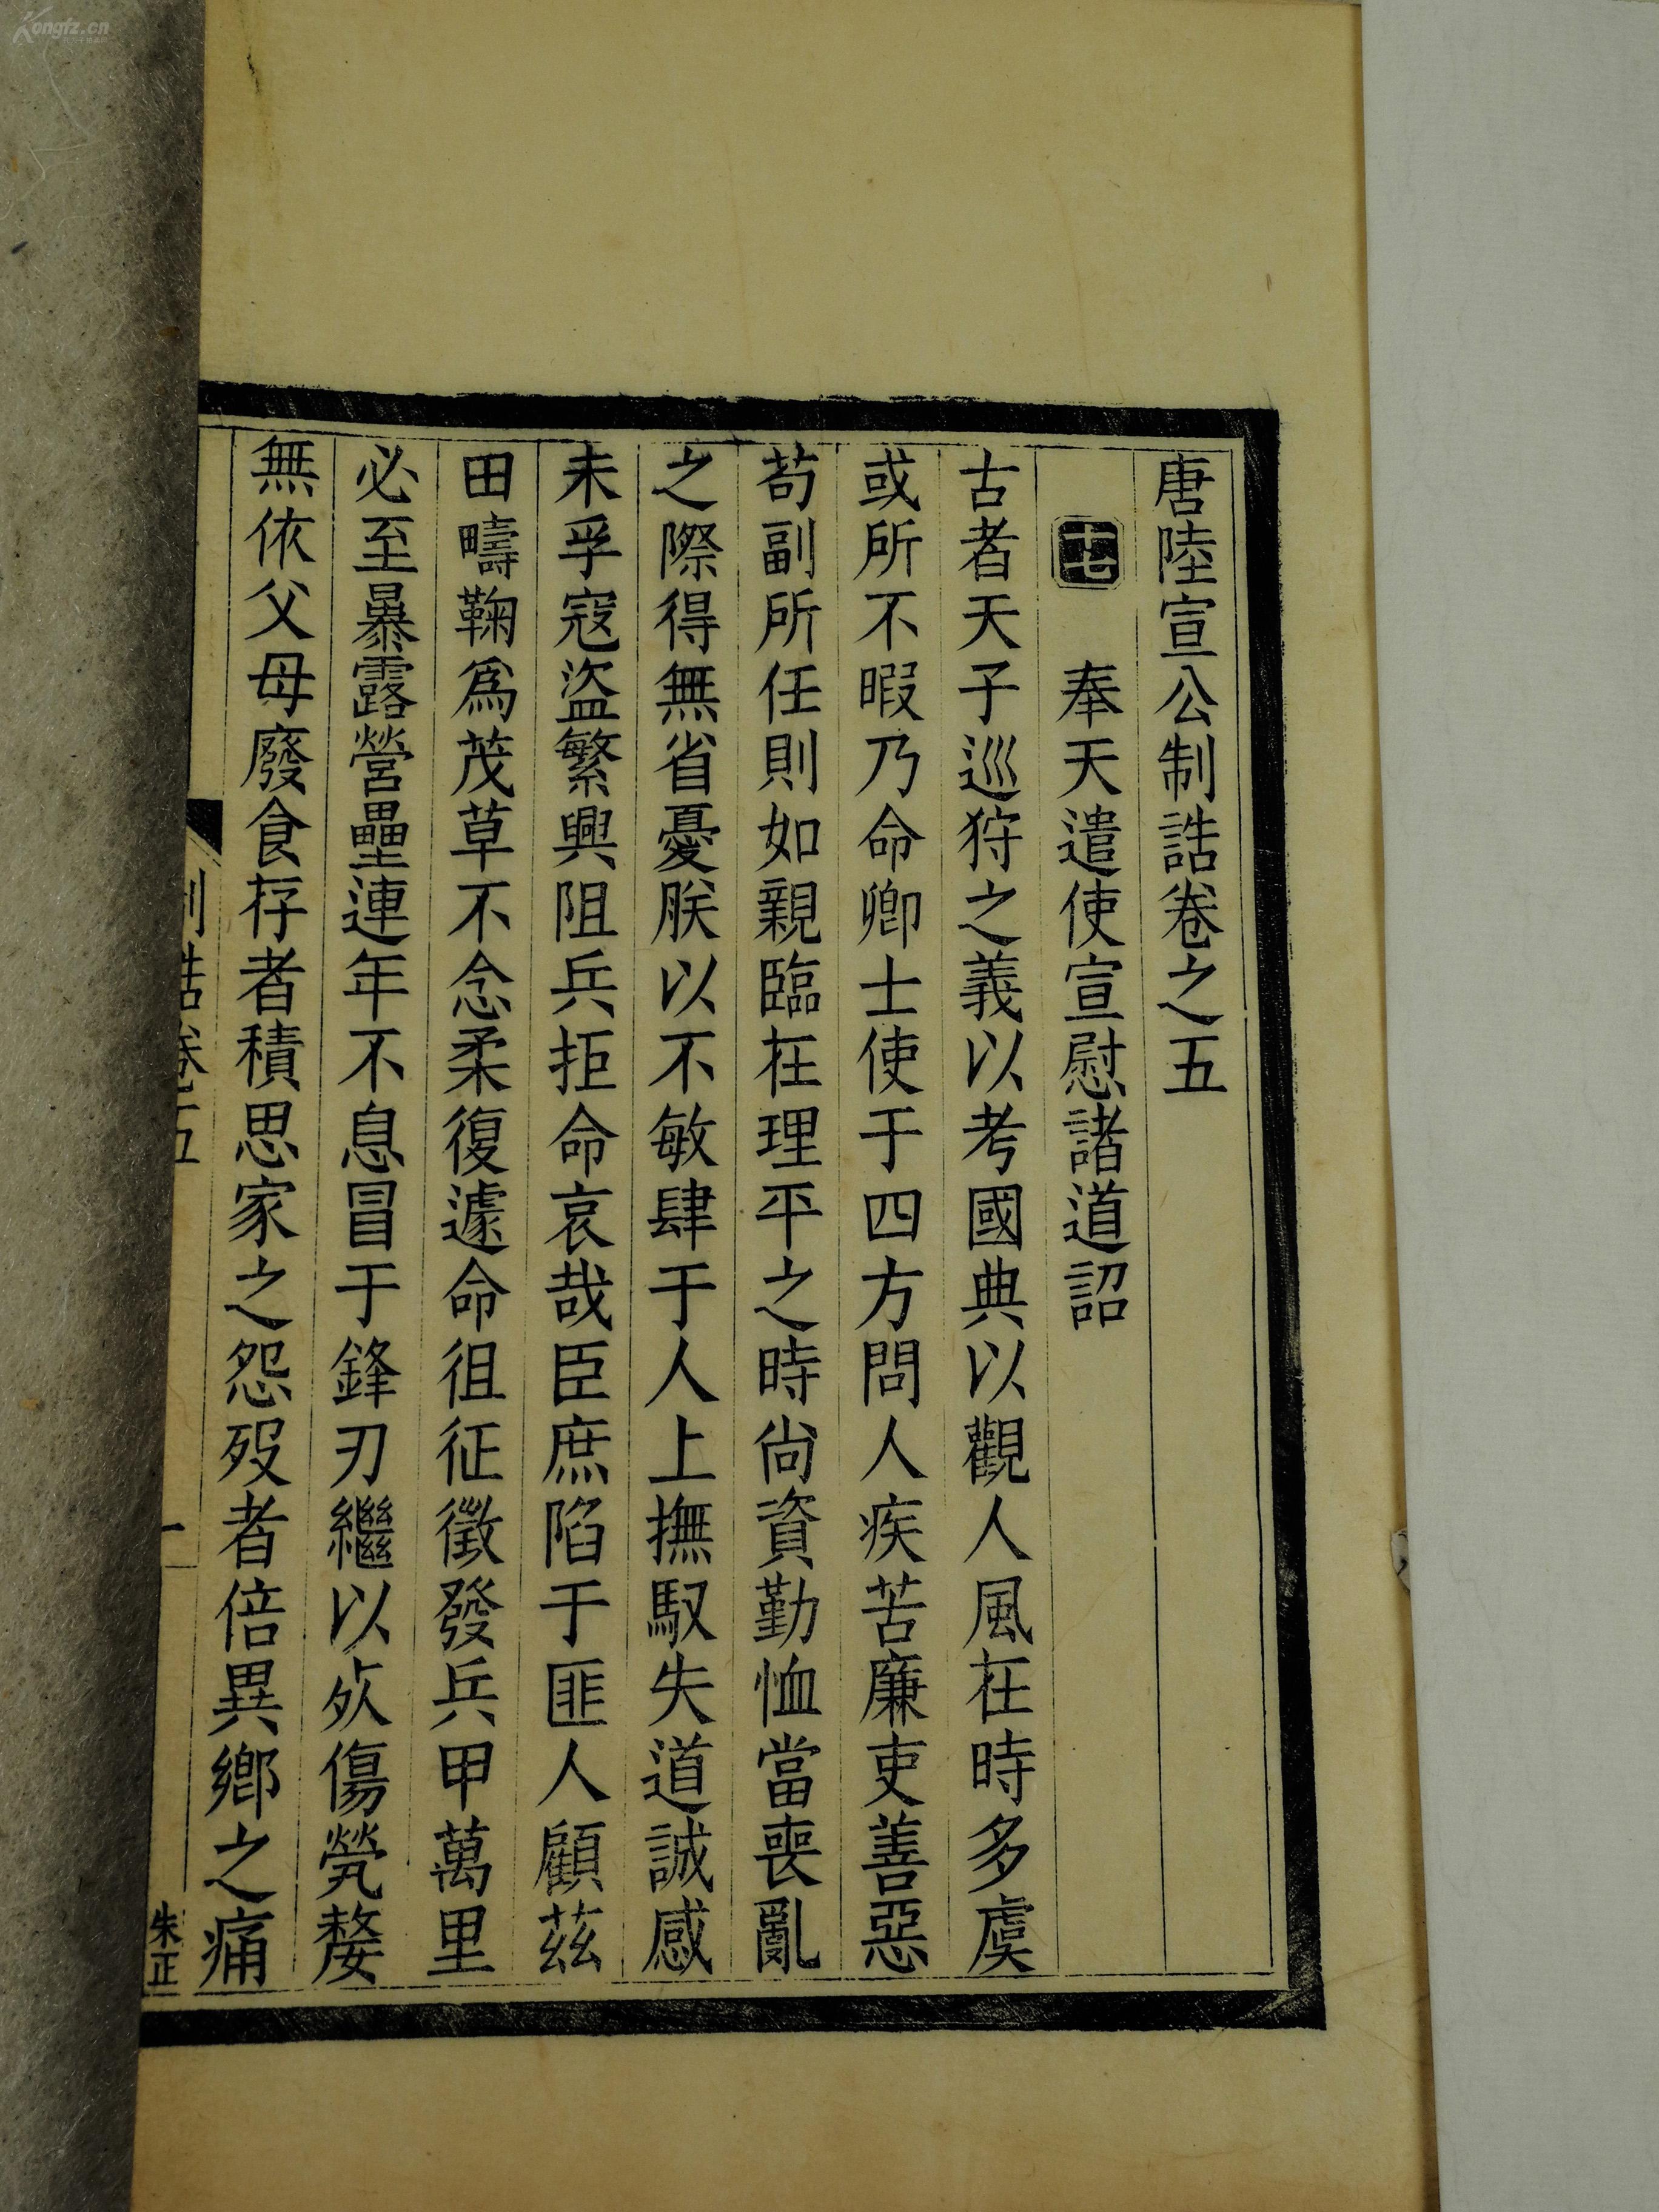 唐陸宣公制誥卷之五
十七 奉天遣使宣慰諸道詔
古者天子巡狩之義以考國典以觀人風在時多虞
或所不暇乃命卿士使于四方問人疾苦廉吏善惡
茍副所任則如親臨在理平之時尙資勤恤當喪亂
之際得無省憂朕以不敏肆于人上撫馭失道誠感
未孚寇盜繁興阻兵拒命哀哉臣庶陷于匪人顧茲
田疇鞠爲茂草不念柔復遽命徂征徵發兵甲萬里
必至暴露營壘連年不息冒于鋒刃繼以疚傷煢嫠
無依父母廢食存者積思家之怨歿者倍異鄉之痛
制誥卷五
一
朱正
Kongfz.cn